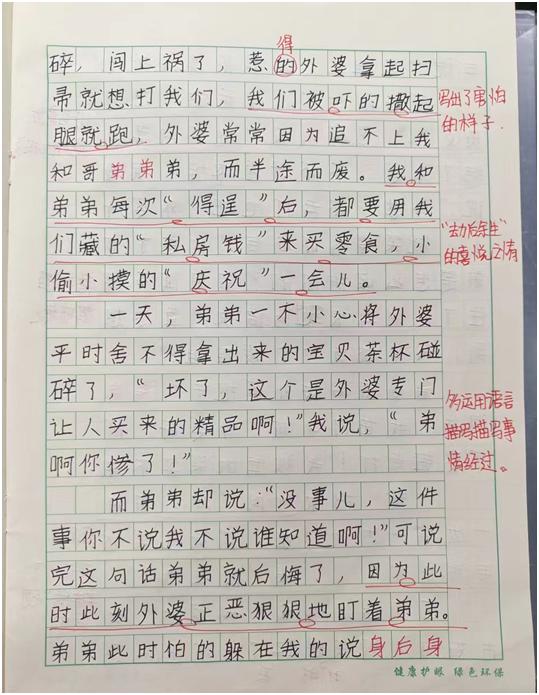 得
碎，闯上祸了，惹的外婆拿起扫
帚就想打我们，我们被吓的撒起
腿就跑，外婆常常因为追不上我
和哥弟弟弟，而半途而废。我和
弟弟每次“得逞”后，都要用我
们藏的“私房钱”来买零食，小
偷小摸的“庆祝”一会儿。
一天，弟弟一不小心将外婆
平时舍不得拿出来的宝贝茶杯碰
碎了，“坏了，这个是外婆专门
让人买来的精品啊！”我说，“弟
啊你惨了！”
而弟弟却说：“没事儿，这件
事你不说我不说谁知道啊！”可说
完这句话弟弟就后悔了，因为此
时此刻外婆正恶狠狠地盯着弟弟。
弟弟此时怕的躲在我的说身后身
写出了害怕
的样子.
的喜悦之情
多运用语言
描写描写事
情经过。
健康护眼 绿色环保